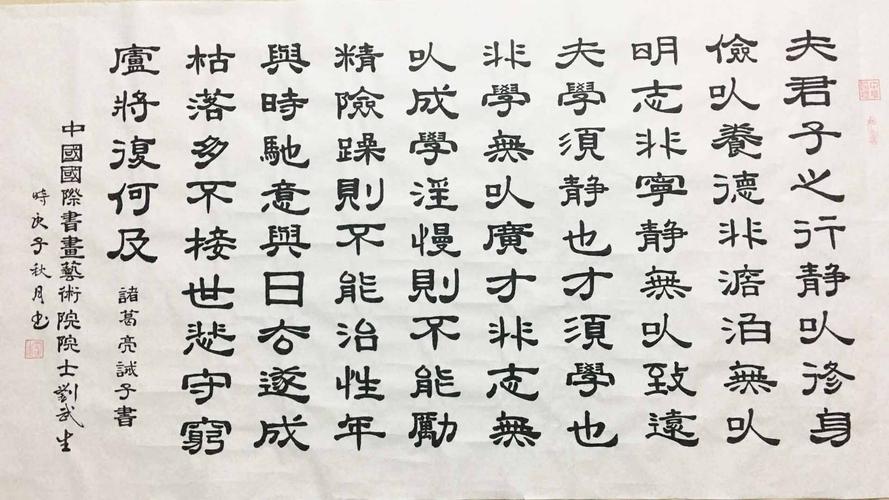 夫君子之行静以修身
儉以養德非澹泊無以
明志非寧静無以致遠
夫學須静也才須學也
非學無以廣才非志無
以成學淫慢則不能勵
精險躁則不能治性年
與時馳意與日去遂成
枯落多不接世悲守窮
廬將復何及
諸葛亮誡子書
中國國際書畫藝術院院士劉武生
時庚子秋月書